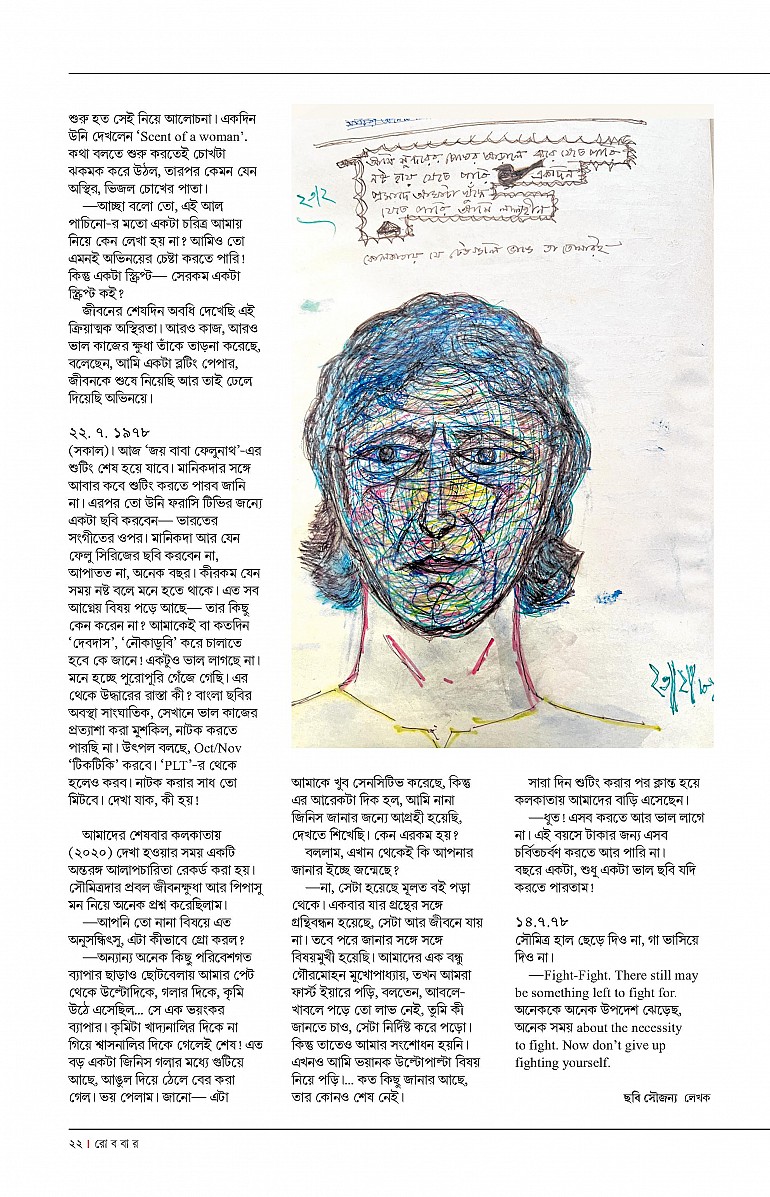 শুরু হত সেই নিয়ে আলোচনা। একদিন
উনি দেখলেন ‘Scent of a woman’.
কথা বলতে শুরু করতেই চোখটা
ঝকমক করে উঠল, তারপর কেমন যেন
অস্থির, ভিজল চোখের পাতা।
—আচ্ছা বলো তো, এই আল
পাচিনো-র মতো একটা চরিত্র আমায়
নিয়ে কেন লেখা হয় না? আমিও তো
এমনই অভিনয়ের চেষ্টা করতে পারি!
কিন্তু একটা স্ক্রিপ্ট— সেরকম একটা
স্ক্রিপ্ট কই?
জীবনের শেষদিন অবধি দেখেছি এই
ক্রিয়াত্মক অস্থিরতা। আরও কাজ, আরও
ভাল কাজের ক্ষুধা তাঁকে তাড়না করেছে,
বলেছেন, আমি একটা ব্লটিং পেপার,
জীবনকে শুষে নিয়েছি আর তাই ঢেলে
দিয়েছি অভিনয়ে।
২২. ৭. ১৯৭৮
(সকাল)। আজ ‘জয় বাবা ফেলুনাথ’-এর
শুটিং শেষ হয়ে যাবে। মানিকদার সঙ্গে
আবার কবে শুটিং করতে পারব জানি
না। এরপর তো উনি ফরাসি টিভির জন্যে
একটা ছবি করবেন— ভারতের
সংগীতের ওপর। মানিকদা আর যেন
ফেলু সিরিজের ছবি করবেন না,
আপাতত না, অনেক বছর। কীরকম যেন
সময় নষ্ট বলে মনে হতে থাকে। এত সব
আগ্নেয় বিষয় পড়ে আছে— তার কিছু
কেন করেন না? আমাকেই বা কতদিন
‘দেবদাস’, ‘নৌকাডুবি’ করে চালাতে
হবে কে জানে! একটুও ভাল লাগছে না।
মনে হচ্ছে পুরোপুরি গেঁজে গেছি। এর
থেকে উদ্ধারের রাস্তা কী? বাংলা ছবির
অবস্থা সাংঘাতিক, সেখানে ভাল কাজের
প্রত্যাশা করা মুশকিল, নাটক করতে
পারছি না। উৎপল বলছে, Oct/Nov
‘টিকটিকি’ করবে। ‘PLT’-র থেকে
হলেও করব। নাটক করার সাধ তো
মিটবে। দেখা যাক, কী হয়!
আমাদের শেষবার কলকাতায়
(২০২০) দেখা হওয়ার সময় একটি
অন্তরঙ্গ আলাপচারিতা রেকর্ড করা হয়।
সৌমিত্রদার প্রবল জীবনক্ষুধা আর পিপাসু
মন নিয়ে অনেক প্রশ্ন করেছিলাম।
—আপনি তো নানা বিষয়ে এত
অনুসন্ধিৎসু, এটা কীভাবে গ্রো করল?
—অন্যান্য অনেক কিছু পরিবেশগত
ব্যাপার ছাড়াও ছোটবেলায় আমার পেট
থেকে উল্টোদিকে, গলার দিকে, কৃমি
উঠে এসেছিল... সে এক ভয়ংকর
ব্যাপার। কৃমিটা খাদ্যনালির দিকে না
গিয়ে শ্বাসনালির দিকে গেলেই শেষ! এত
বড় একটা জিনিস গলার মধ্যে গুটিয়ে
আছে, আঙুল দিয়ে ঠেলে বের করা
গেল। ভয় পেলাম। জানো— এটা
আমাকে খুব সেনসিটিভ করেছে, কিন্তু
এর আরেকটা দিক হল, আমি নানা
জিনিস জানার জন্যে আগ্রহী হয়েছি,
দেখতে শিখেছি। কেন এরকম হয়?
বললাম, এখান থেকেই কি আপনার
জানার ইচ্ছে জন্মেছে?
—না, সেটা হয়েছে মূলত বই পড়া
থেকে। একবার যার গ্রন্থের সঙ্গে
গ্রন্থিবন্ধন হয়েছে, সেটা আর জীবনে যায়
না। তবে পরে জানার সঙ্গে সঙ্গে
বিষয়মুখী হয়েছি। আমাদের এক বন্ধু
গৌরমোহন মুখোপাধ্যায়, তখন আমরা
ফার্স্ট ইয়ারে পড়ি, বলতেন, আবলে-
খাবলে পড়ে তো লাভ নেই, তুমি কী
জানতে চাও, সেটা নির্দিষ্ট করে পড়ো।
কিন্তু তাতেও আমার সংশোধন হয়নি।
এখনও আমি ভয়ানক উল্টোপাল্টা বিষয়
নিয়ে পড়ি।... কত কিছু জানার আছে,
তার কোনও শেষ নেই।
সারা দিন শুটিং করার পর ক্লান্ত হয়ে
কলকাতায় আমাদের বাড়ি এসেছেন।
—ধূত! এসব করতে আর ভাল লাগে
না। এই বয়সে টাকার জন্য এসব
চর্বিতচর্বণ করতে আর পারি না।
বছরে একটা, শুধু একটা ভাল ছবি যদি
করতে পারতাম!
১৪.৭.৭৮
সৌমিত্র হাল ছেড়ে দিও না, গা ভাসিয়ে
দিও না।
—Fight-Fight. There still may
be something left to fight for.
অনেককে অনেক উপদেশ ঝেড়েছ,
অনেক সময় about the necessity
to fight. Now don’t give up
fighting yourself.
ছবি সৌজন্য লেখক
২২ । রোববার